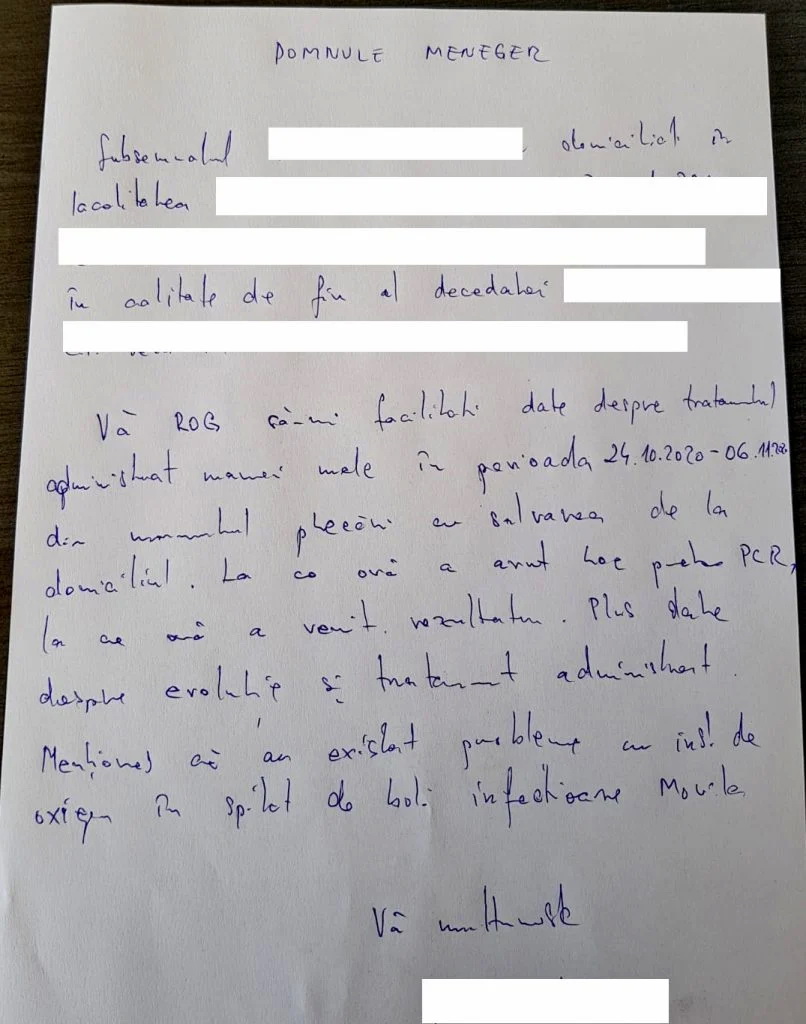 DOMNULE MENEGER
Subsemnatul domiciliat în
localitatea
în calitate de fiu al decedatei
Vă ROG să-mi facilitati date despre tratamentul
administrat mamei mele în perioada 24.10.2020-06.11.2020
din momentul plecării cu salvarea de la
domiciliul. La ce oră a avut loc PCR,
la ce oră a venit rezultatul. Plus date
despre evoluție și tratament administrat.
Menționez că au existat probleme cu inst de
oxigen în spital de boli infectioase Movila
Vă multumesc